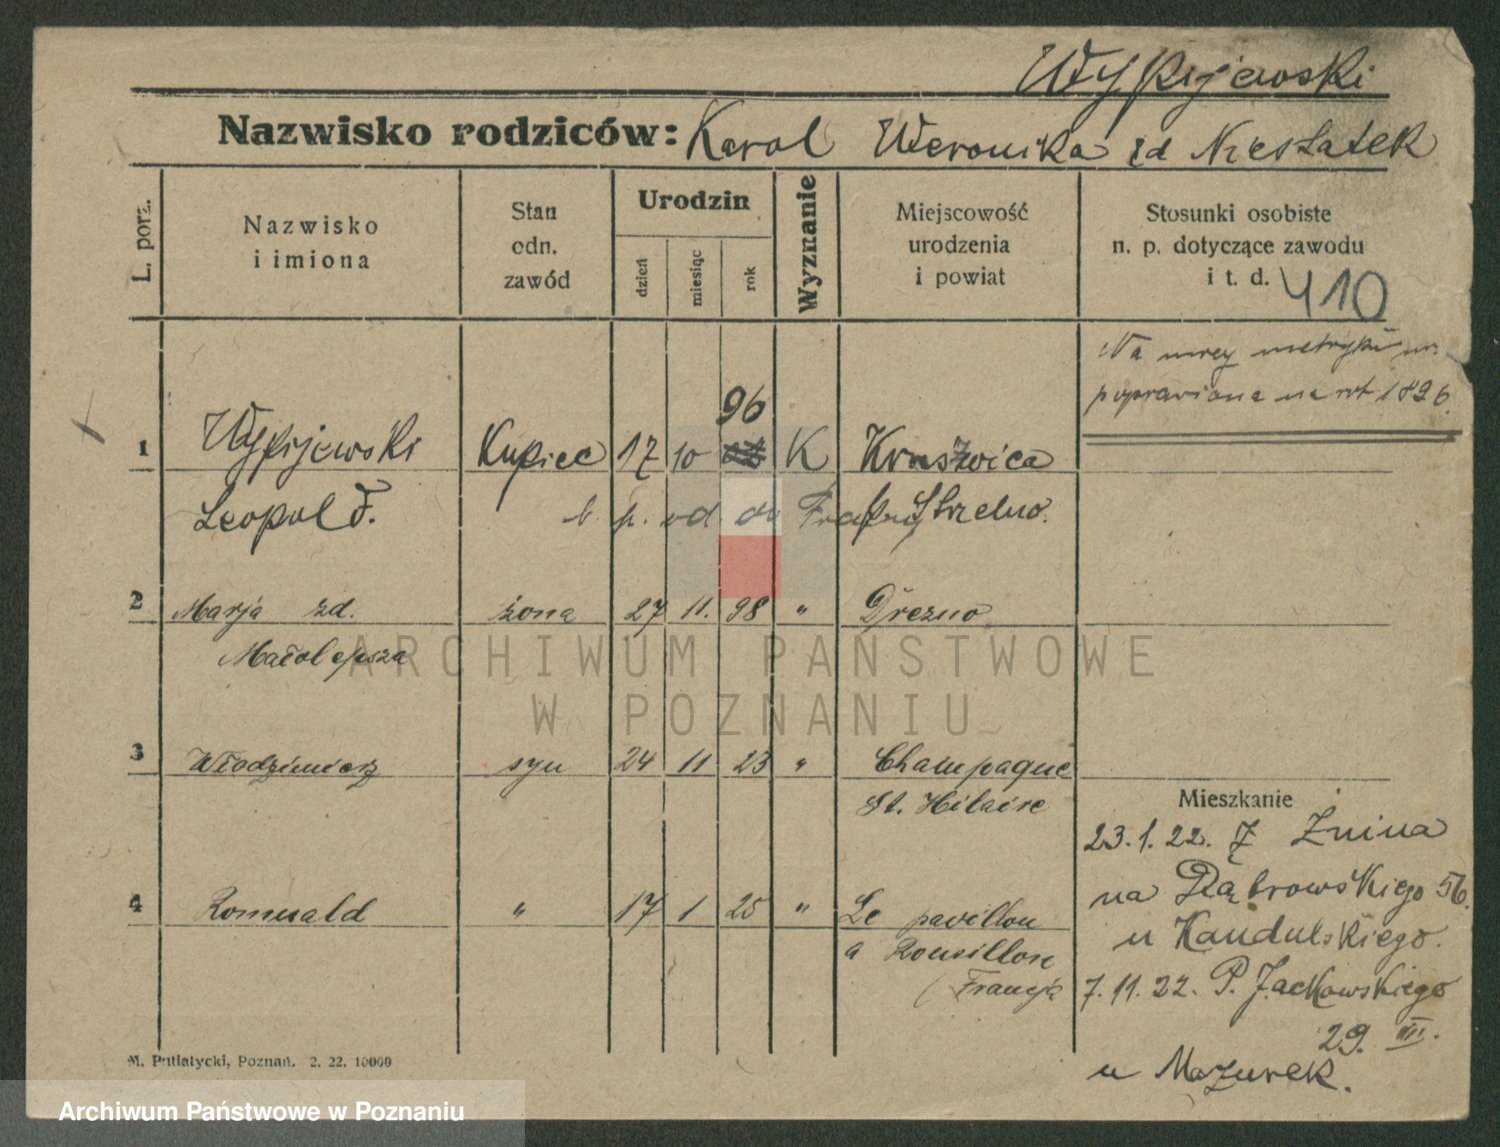 Wypijewski
Nazwisko rodziców: Karol Weronika zd Niesłatek
L. porz.
Nazwisko
i imiona
Stan
odn.
zawód
Urodzin
dzień
miesiąc
rok
Wyznanie
Miejscowość
urodzenia
i powiat
Stosunki osobiste
n. p. dotyczące zawodu
i t. d. 410
Na mocy metryki ur.
poprawiona na rok 1896.
96
1 Wypijewski Kupiec 17 10 K Kruszwica
Leopold F. b. p. od do Francji Strzelno.
2 Marja zd. żona 27 11. 98 " Drezno
Małolepsza
3 Włodzimierz syn 24 11 23 " Champagne
St. Hilaire
4 Romuald " 17 1 25 " Le pavillon
a Rousillon
(Francja
Mieszkanie
23.1.22. Z Żnina
na Dąbrowskiego 56.
u Kandulskiego.
7.11.22. P. Jackowskiego
29. III.
u Mazurek.
M. Putiatycki, Poznań. 2. 22. 10000
ARCHIWUM PAŃSTWOWE
W POZNANIU
Archiwum Państwowe w Poznaniu